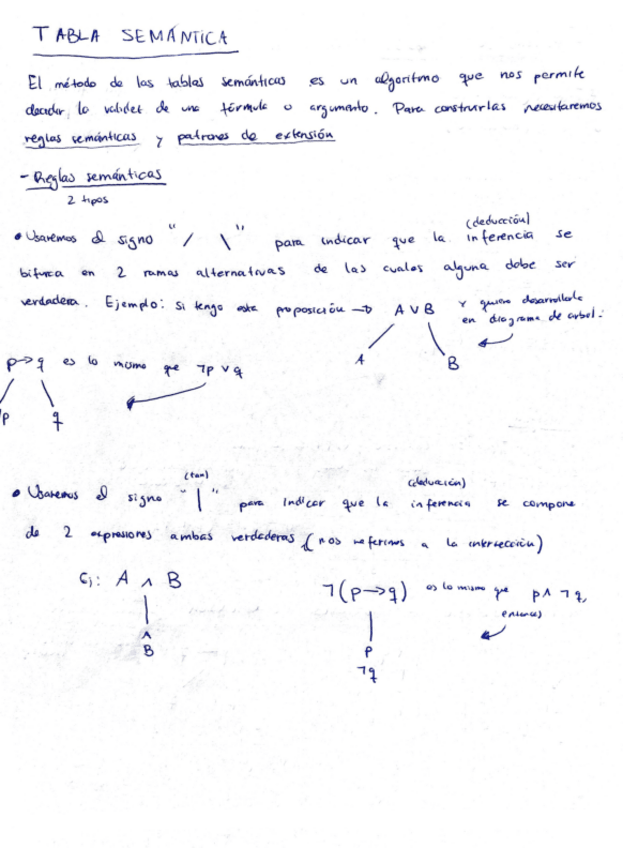 TABLA SEMÁNTICA
El método de las tablas semánticas es un algoritmo que nos permite
decidir lo validez de una fórmula o argumento. Para construirlas necesitaremos
reglas semánticas y patrones de extensión
- Reglas semánticas
2 tipos
• Usaremos el signo "/ \" para indicar que la (deducción) inferencia se
bifurca en 2 ramas alternativas de las cuales alguna debe ser
verdadera. Ejemplo: Si tengo esta proposición → A ∨ B y quiero desarrollarla
en diagrama de arbol:
A B
p→q es lo mismo que ¬p ∨ q
p q
(tan)
(deducción)
• Usaremos el signo "|" para indicar que la inferencia se compone
de 2 expresiones ambas verdaderas (nos referimos a la intersección)
Ej: A ∧ B
^
B
¬(p→q) es lo mismo que p ∧ ¬q,
entonces
p
¬q